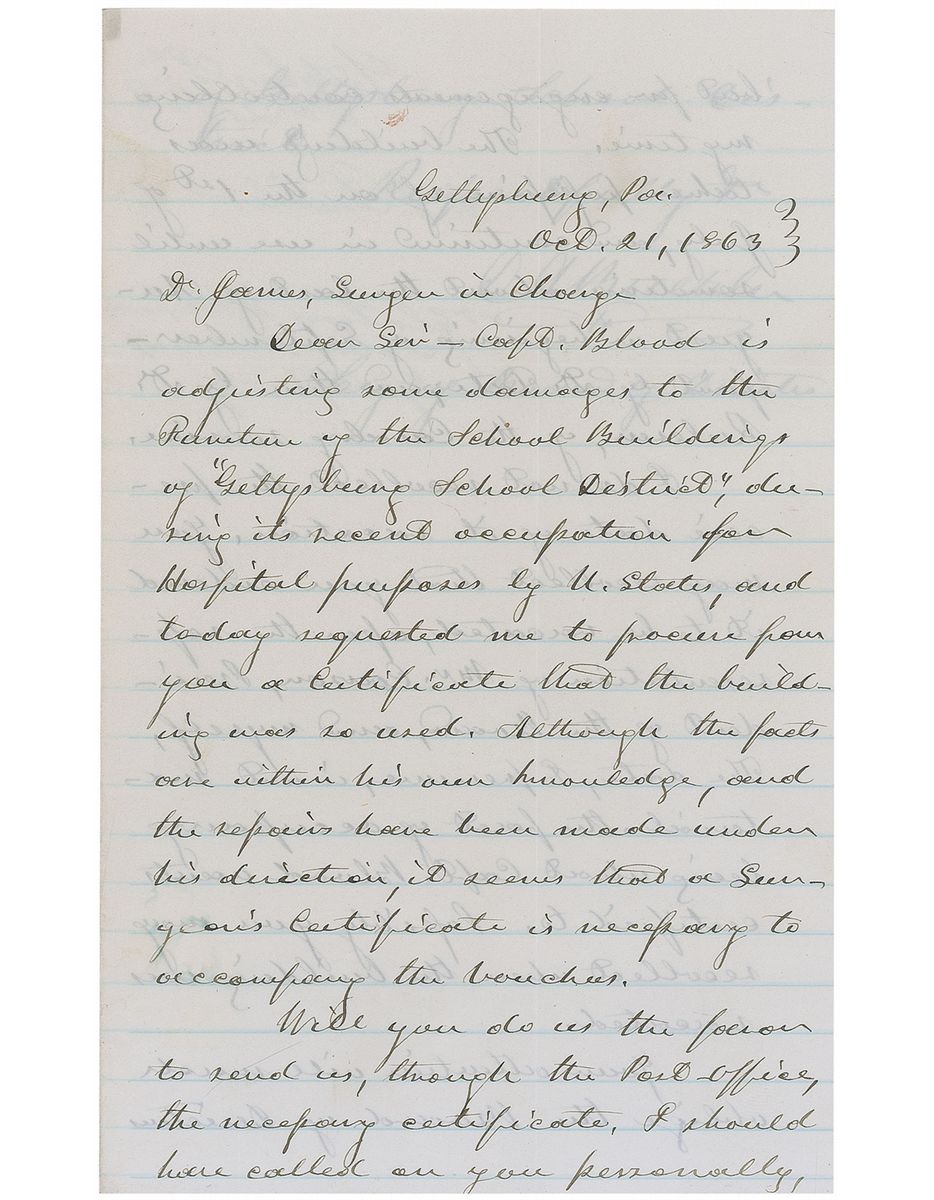 Gettysburg, Pa.
Oct. 21, 1863
Dr. James, Surgeon in Charge
Dear Sir — Capt. Blood is
adjusting some damages to the
Furniture of the School Buildings
of "Gettysburg School District", du-
ring its recent occupation for
Hospital purposes by U. States, and
to-day requested me to procure from
you a Certificate that the build-
ing was so used. Although the facts
are within his own knowledge, and
the repairs have been made under
his direction, it seems that a Sur-
geon's Certificate is necessary to
accompany the vouchers.
Will you do us the favor
to send us, through the Post-Office,
the necessary certificate. I should
have called on you personally,